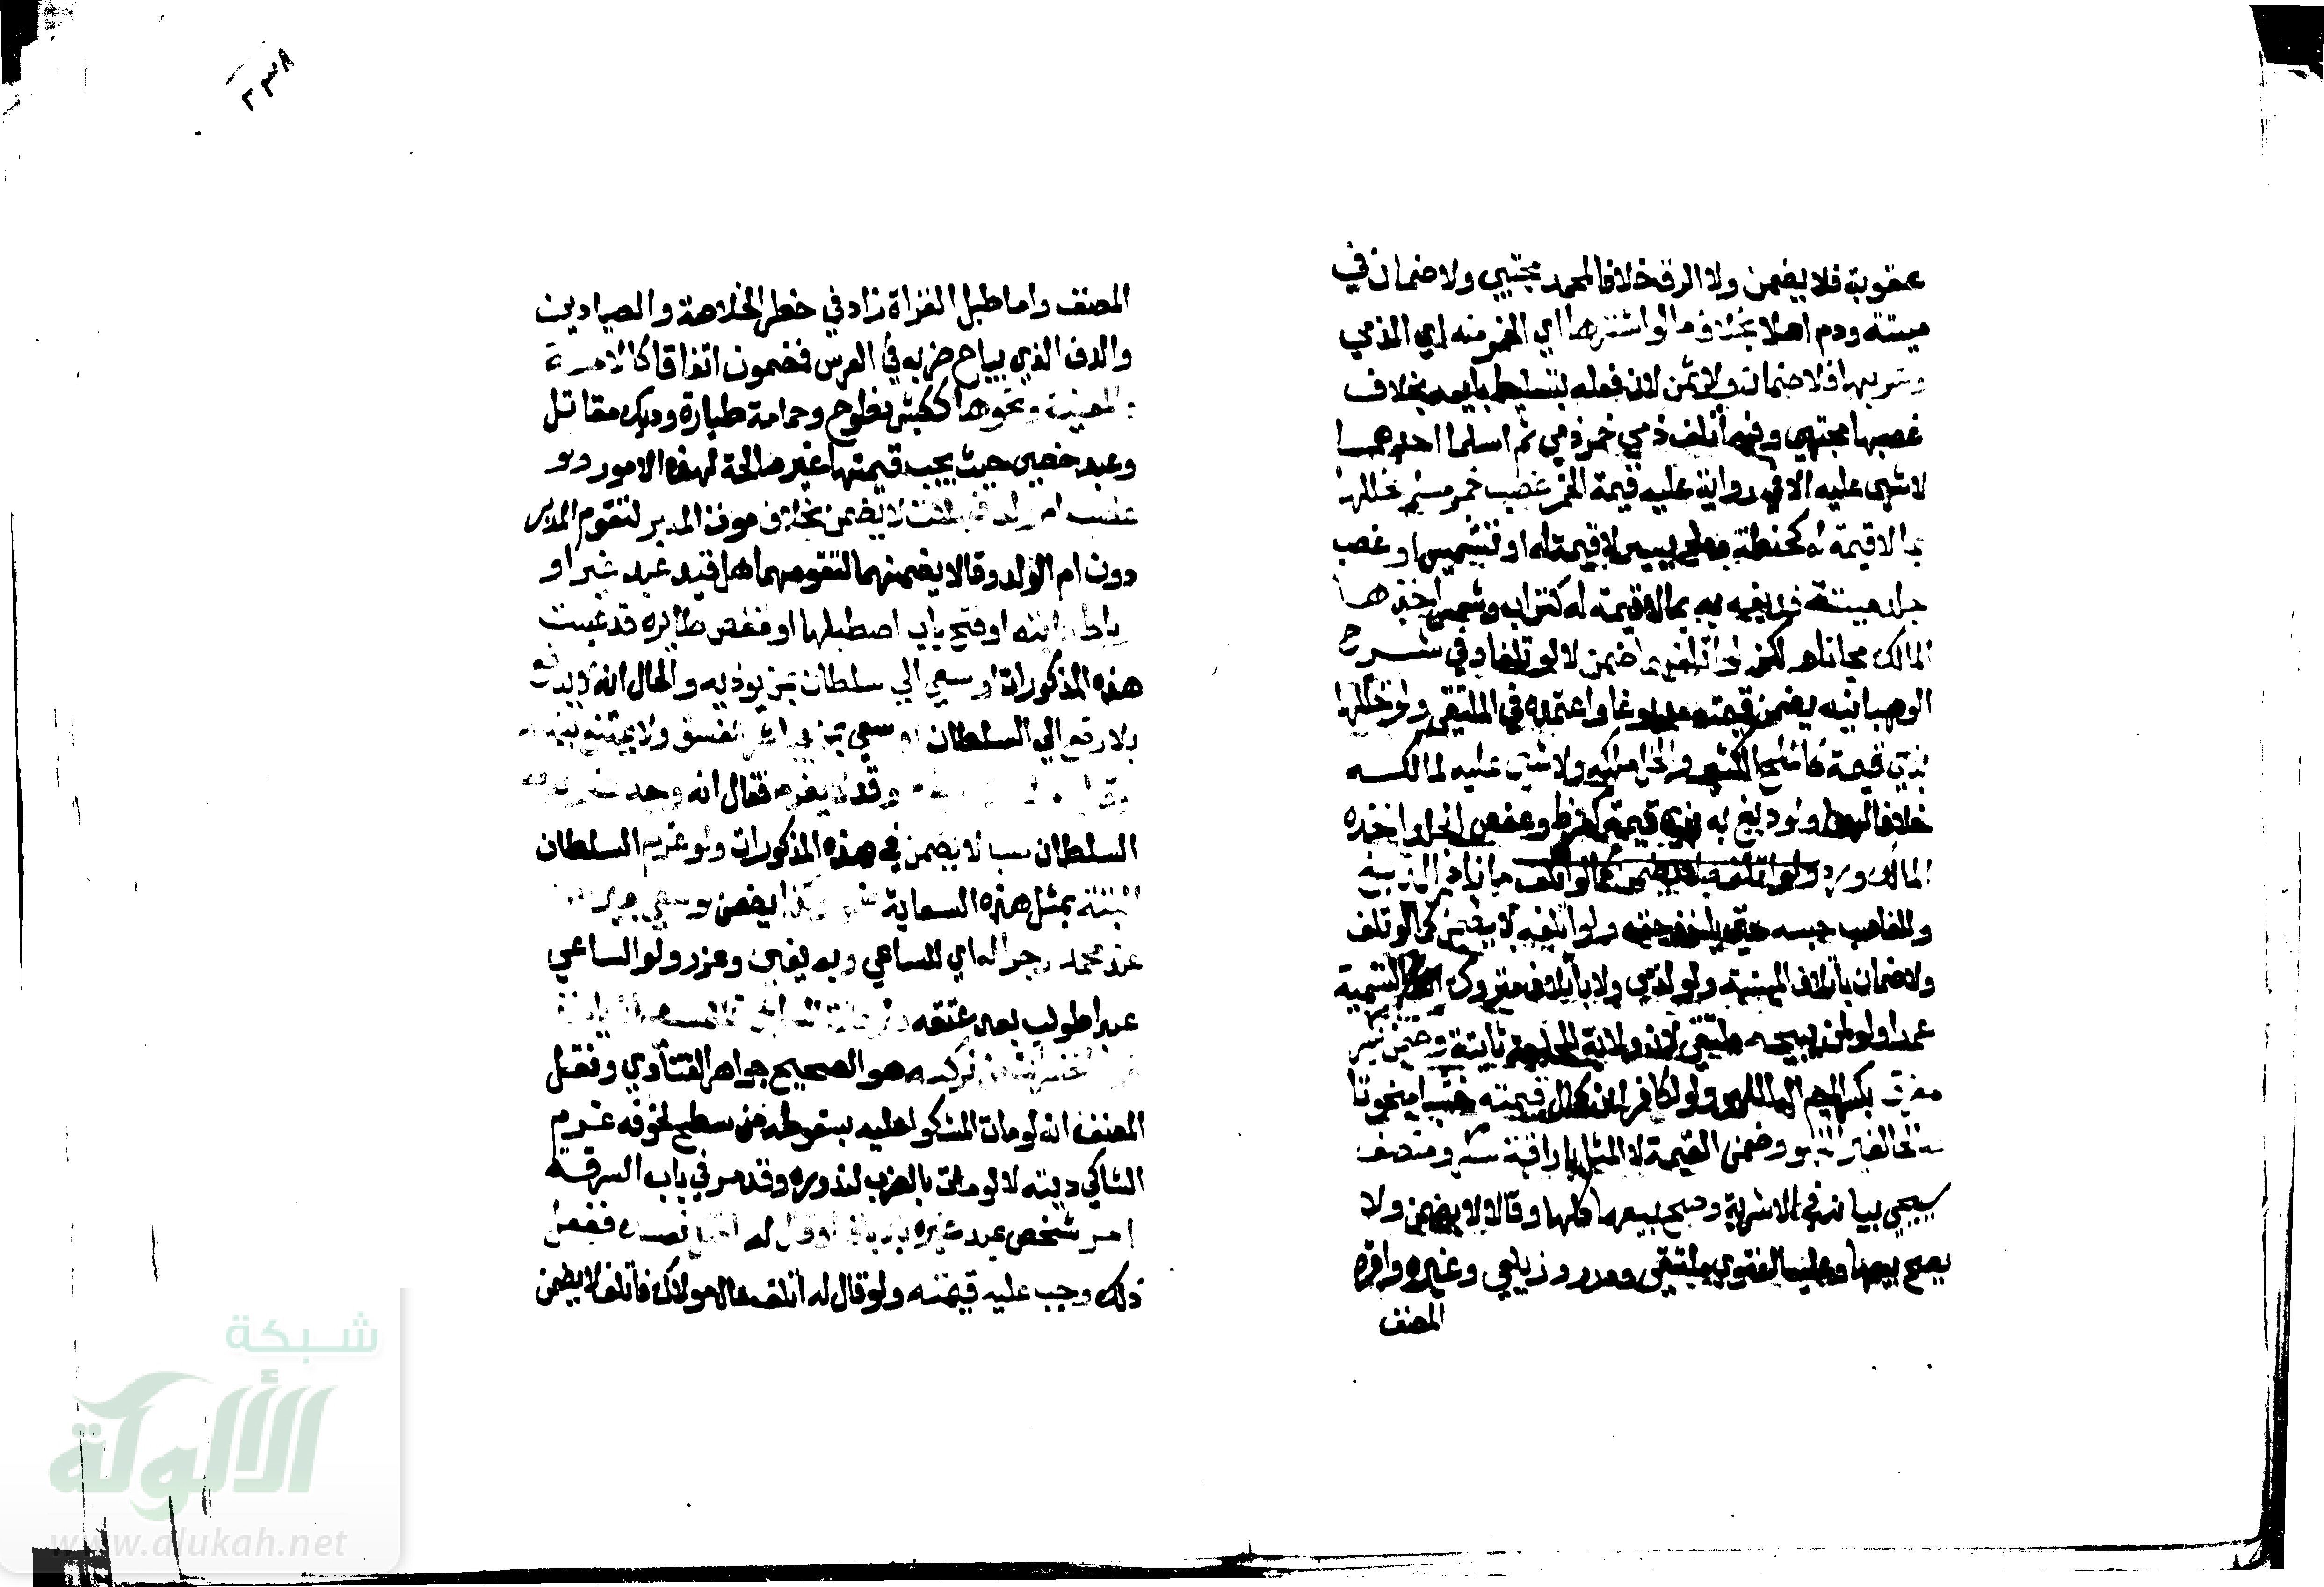 عقوبة فلا يضمن ولا الرق خلافا لمحمد مجتبي ولا ضمان في
ميتة ودم اصلا بخلاف ما لو اشتراها اي الخمر منه اي الذمي
وشربها فلا ضمان ولا ثمن لان فعله بتسليط بايعه بخلاف
غصبها مجتبي وفيه اتلف ذمي خمر ذمي ثم اسلما احدهما
لا شي عليه الا في رواية عليه قيمة الخمر غصب خمر مسلم فخللها
بما لا قيمة له كحنطة وملح يسير لا قيمة له او تشميس او غصب
جلد ميتة فدبغه به بما لا قيمة له كتراب وشمس اخذها
المالك مجانا لكن لو اتلفهما ضمن لا لو تلفا وفي شرح
الوهبانية يضمن قيمته مدبوغا واعتمده في الملتقي ولو خللها
بذي قيمة كالملح الكثير والخل ملكه ولا شي عليه لمالكه
خلافا لهما ولو دبغ به بذي قيمة كقرظ وعفص الجلد اخذه
المالك ورد ما زاد الدبغ
وللغاصب حبسه حتي ياخذ حقه ولو اتلفه لا يضمن كما لو تلف
ولا ضمان باتلاف الميتة ولو لذمي ولا باتلاف متروك التسمية
عمدا ولو لمن يبيحه ملتقي لان ولاية المحاجة ثابتة وضمن بكسر
معزف بكسر الميم الة اللهو ولو لكافر ابن كمال قيمته خشبا منحوتا
صالحا لغير اللهو وضمن القيمة لا المثل باراقة سكر ومنصف
سيجي بيانه في الاشربة وصح بيعها كلها وقالا لا يضمن ولا
يصح بيعها وعليه الفتوي ملتقي ودرر وزيلعي وغيره واقره
المصنف
٢٣٨
المصنف واما طبل الغزاة زاد في حظر الخلاصة والصيادين
والدف الذي يباح ضربه في العرس فمضمون اتفاقا كالامة
المغنية ونحوها ككبش نطوح وحمامة طيارة وديك مقاتل
وعبد خصي حيث يجب قيمتها غير صالحة لهذه الامور ولو
غصب ام ولد فهلكت لا يضمن بخلاف موت المدبر لتقوم المدبر
دون ام الولد وقالا يضمنهما لتقومهما حل قيد عبد غيره او
رباط دابته او فتح باب اصطبلها او قفص طائره فذهبت
هذه المذكورات او سعي الي سلطان بمن يوذيه والحال انه لا يدفع
بلا رفع الي السلطان او سعي بمن يباشر الفسق ولا يمتنع بنهيه
وقد لا يغرم فقال انه وجد
السلطان شيا لا يضمن في هذه المذكورات ولو غرم السلطان
البتة بمثل هذه السعاية ضمن وكذا يضمن لو سعي بغير
عند محمد زجرا له اي للساعي وبه يفتي وعزر ولو الساعي
عبدا طولب بعد عتقه
تركته هو الصحيح جواهر الفتاوي ونقل
المصنف انه لو مات المشكو عليه بسقوطه من سطح لخوفه غرم
الشاكي ديته لا لو مات بالضرب لندوره وقد مر في باب السرقة
امر شخص عبد غيره بالاباق او قال له اقتل نفسك ففعل
ذلك وجب عليه قيمته ولو قال له اتلف مال مولاك فاتلف لا يضمن
شبكة
الألوكة
www.alukah.net